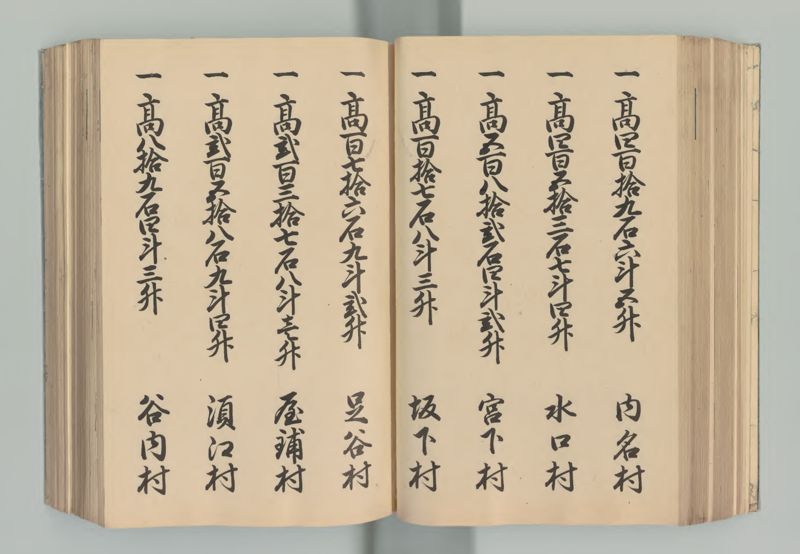 一高四百拾九石六斗五升 内名村
一高四百五拾三石七斗四升 水口村
一高五百八拾弐石四斗弐升 宮下村
一高百拾七石八斗三升 坂下村
一高百七拾六石九斗弐升 足谷村
一高弐百三拾七石八斗壱升 屋鋪村
一高弐百五拾八石九斗四升 須江村
一高八拾九石四斗三升 谷内村